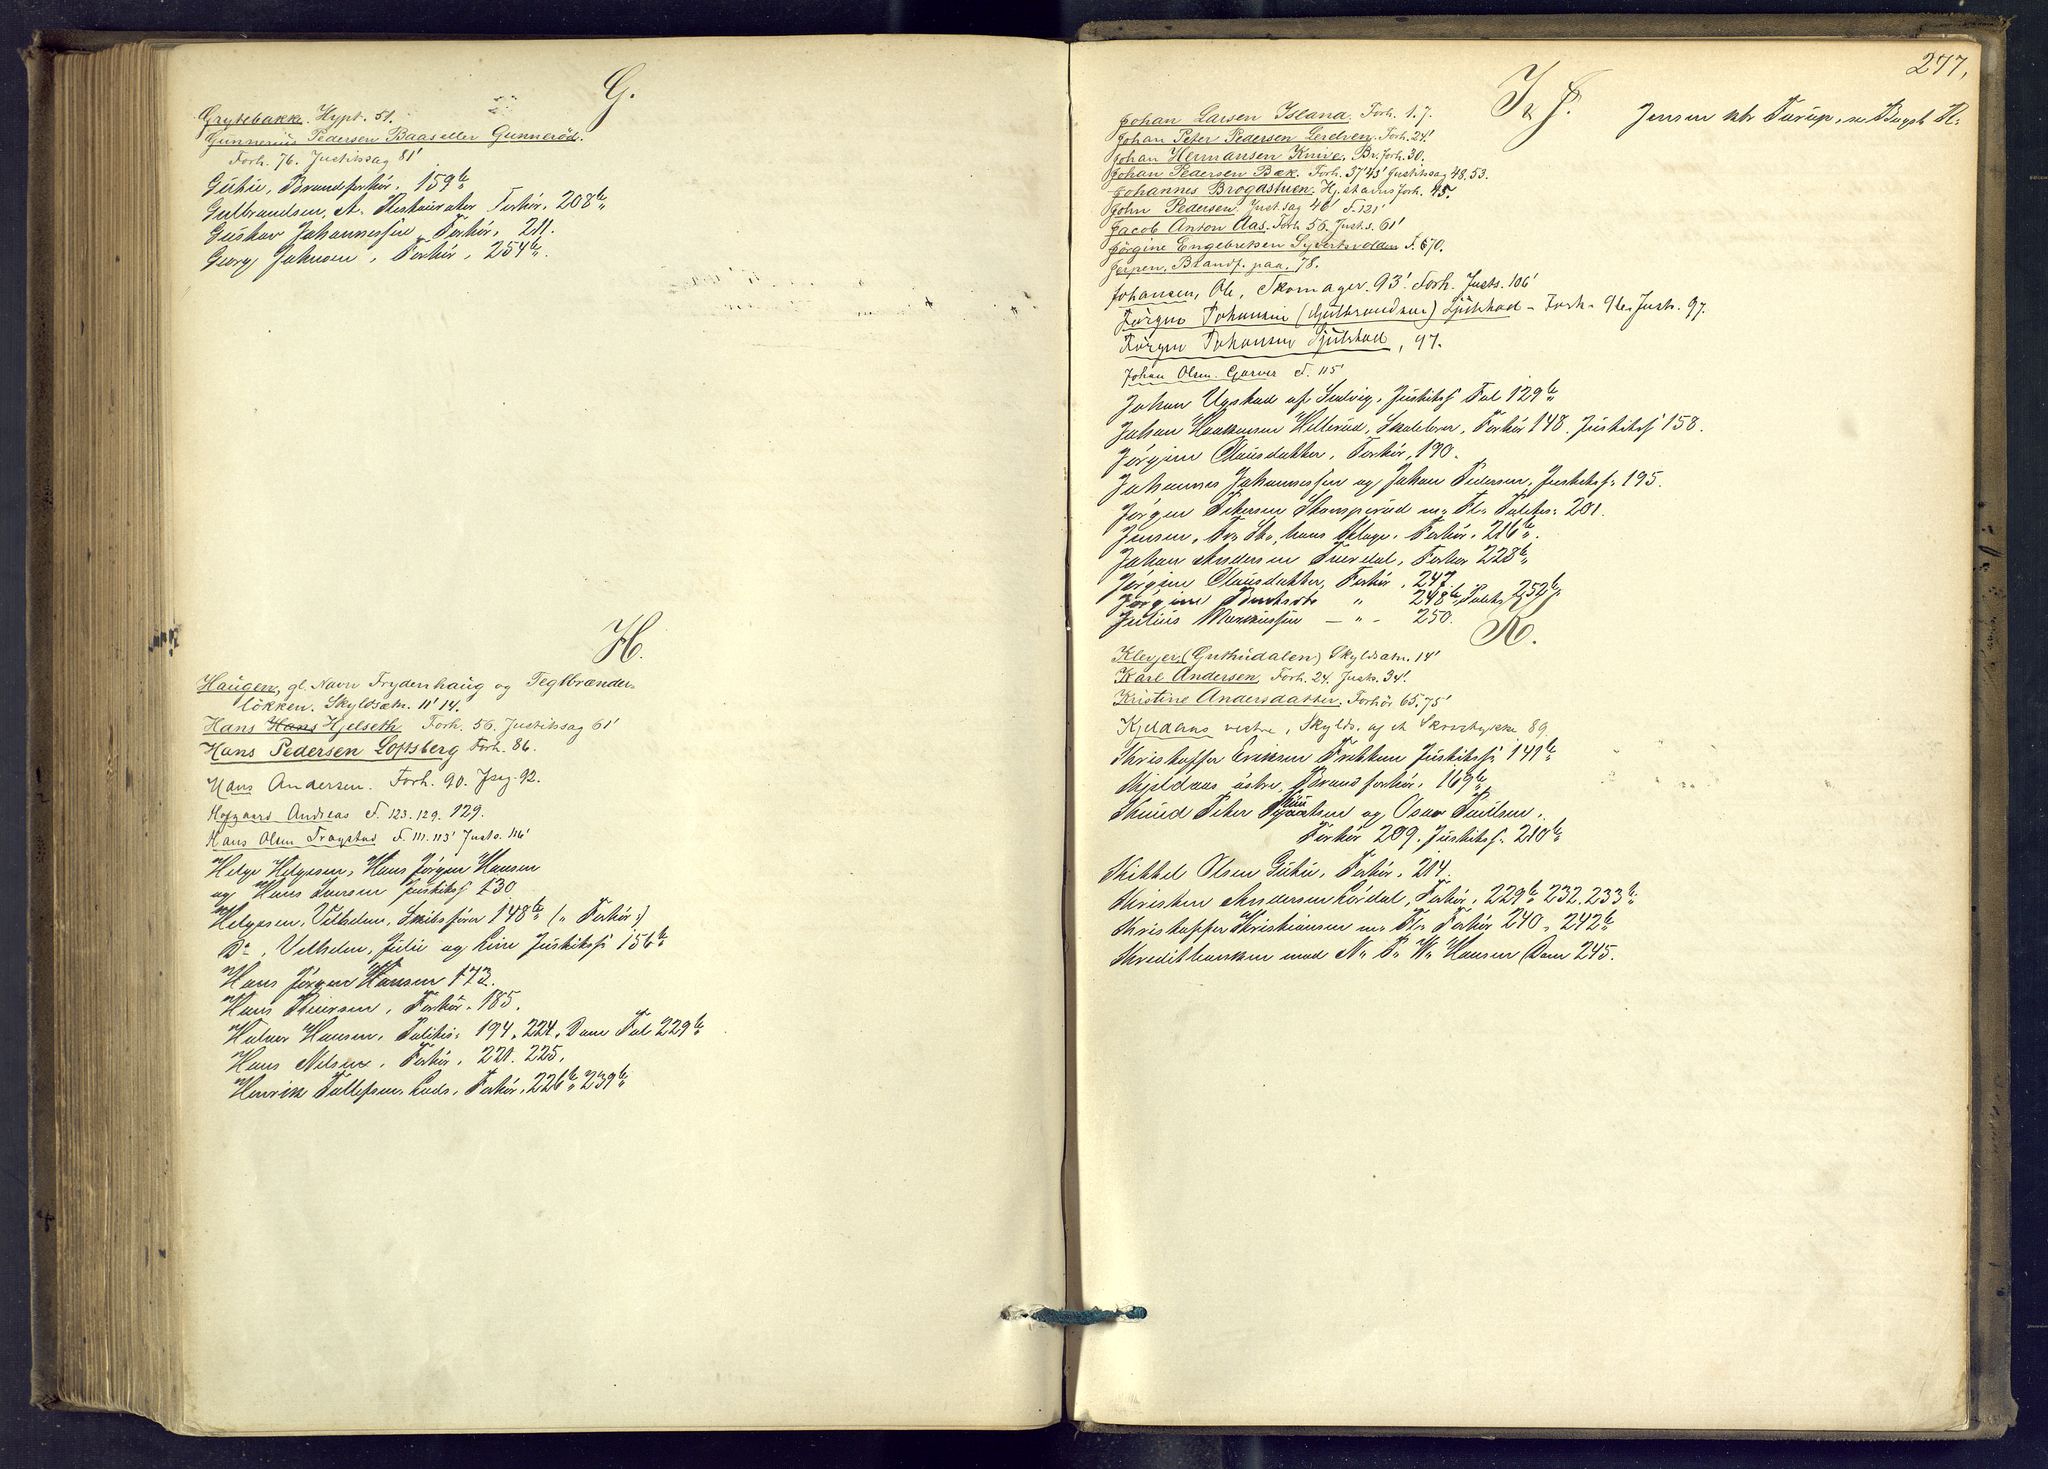 G.
Grytebakk. Hypt. 51.
Gunnerius Pedersen Baas eller Gunnerød.
Forh. 76. Justitssag 81'
Gutu, Brandforhör. 159 b
Gulbrandsen, A. Restauratør Forhör. 208 b
Gustav Johannessen Forhör, 211.
Georg Johnsen, Forhör, 254 b.
H.
Haugen, gl. Navn Frydenhaug og Teglbrænder-
lökken. Skyldsætn. 11' 14.
Hans Hans Hjelseth Forh. 56. Justitssag 61'
Hans Pedersen Loftsberg Forh. 86.
Hans Andersen. Forh. 90. Jsag. 92.
Hofgaard Andreas F. 123. 129. 129.
Hans Olsen Trogstad F. 111. 113' Justs. 116'
Helge Helgesen, Hans Jörgen Hansen
og Hans Larsen Justitss 130
Helgesen, Vilhelm, Skibsförer 148 b (Forhör)
Do, Vilhelm, Julie og Line Justitss 156 b
Hans Jörgen Hansen 173.
Hans Iversen, Forhör. 185.
Halvor Hansen, Politis. 194. 224. Dom Fol 229 b
Hans Nilsen, Forhör, 221. 225.
Henrik Tollefsen, Forhör, 226 b 239 b
277.
I & J.
Jensen Bogst H.
Johan Larsen Island. Forh. 1. 7.
Johan Peter Pedersen Lerelven. Forh. 24'
Johan Hermansen Knive, Br. forh. 30.
Johan Pedersen Bæk. Forh. 37' 43' Justitssag 48. 53.
Johannes Brogastuen. Hjstavns forh. 45.
John Pedersen Just. sag 46' F. 121'
Jacob Anton Aas. Forh. 56. Just. s. 61'
Jørgine Engebretsen Syvertsvolden F. 670.
Jerpen, Brandf. paa, 78.
Johansen, Ole, Skomager. 93' Forh. Justs. 106'
Jörgen Johansen (Gulbrandsen) Sjulstad - Forh. 96. Justs. 97.
Jörgen Johansen Sjulstad, 97.
Johan Olsen. Garver F. 115'
Johan Ugstad af Ludvig, Justitss Fol 129 b
Johan Haakensen Hellerud, Skolelærer, Forhör 148. Justitss 158.
Jörgine Clausdatter, Forhör, 190.
Johannes Johannessen og Johan Pedersen, Justitss. 195.
Jörgen Petersen m. Fl. Politis. 201.
Jensen, hans Klage. Forhör. 216 b.
Johan Andersen Fuerdal, Forhör 228 b
Jörgine Clausdatter, Forhör. 247
Jörgine 〃 248 b, Politis 252 b.
Julius Marcussen - 〃 - 250.
K.
Klevjer, (Guthudalen) Skyldsætn. 14'
Karl Andersen, Forh. 24. Justs. 34'
Kristine Andersdatter. Forhör 65. 75'
Kjeldaas vestre, Skylds. af et Skovstykke 89.
Kristoffer Eriksen Justitss. 141 b
Kjeldaas östre, Brandforhör. 169 b
Knud Peter Knutsen og Oscar Poulsen.
Forhör 209. Justitss. 210 b
Mikkel Olsen Gutu, Forhör, 214.
Kristen Andersen Lördal, Forhör, 229 b 232. 233 b
Kristoffer Kristiansen m. Fl. Forhör 240. 242 b
Kreditbanken mod N. P. W. Hansen Dom 245.